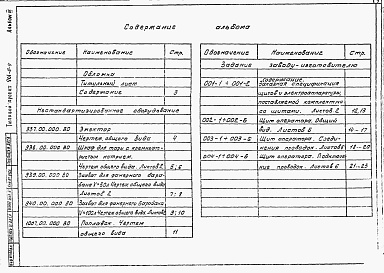 Содержание альбома
Обозначение Наименование Стр.
Обложка
Титульный лист
Содержание 3
Нестандартизированное оборудование
937.00.000.ВО Эжектор
Чертеж общего вида 4
938.00.000.ВО Шкаф для тары с
Чертеж общего вида. Листов 2 5; 6
939.00.000.ВО Захват для фанерного бара-
бана V=50л Чертеж общего вида
Листов 2 7; 8
940.00.000.ВО Захват для фанерного барабана
V=100л Чертеж общего вида. Листов 2 9; 10
1057.00.000.ВО Поплавок. Чертеж
общего вида 11
Обозначение Наименование Стр.
Задание заводу-изготовителю
001-1 ÷ 001-2 Содержание.
Заказная спецификация
щитов и электроаппаратуры,
поставляемой комплектно
со щитами. Листов 2 12, 13
002-1 ÷ 002-5 Щит оператора. Общий
вид. Листов 5 14-17
003-1 ÷ 003-5 Щит оператора. Соеди-
нения проводок. Листов 18-20
004-1 ÷ 004-5 Щит оператора. Подключе-
ния проводок. Листов 5 21-25
Альбом